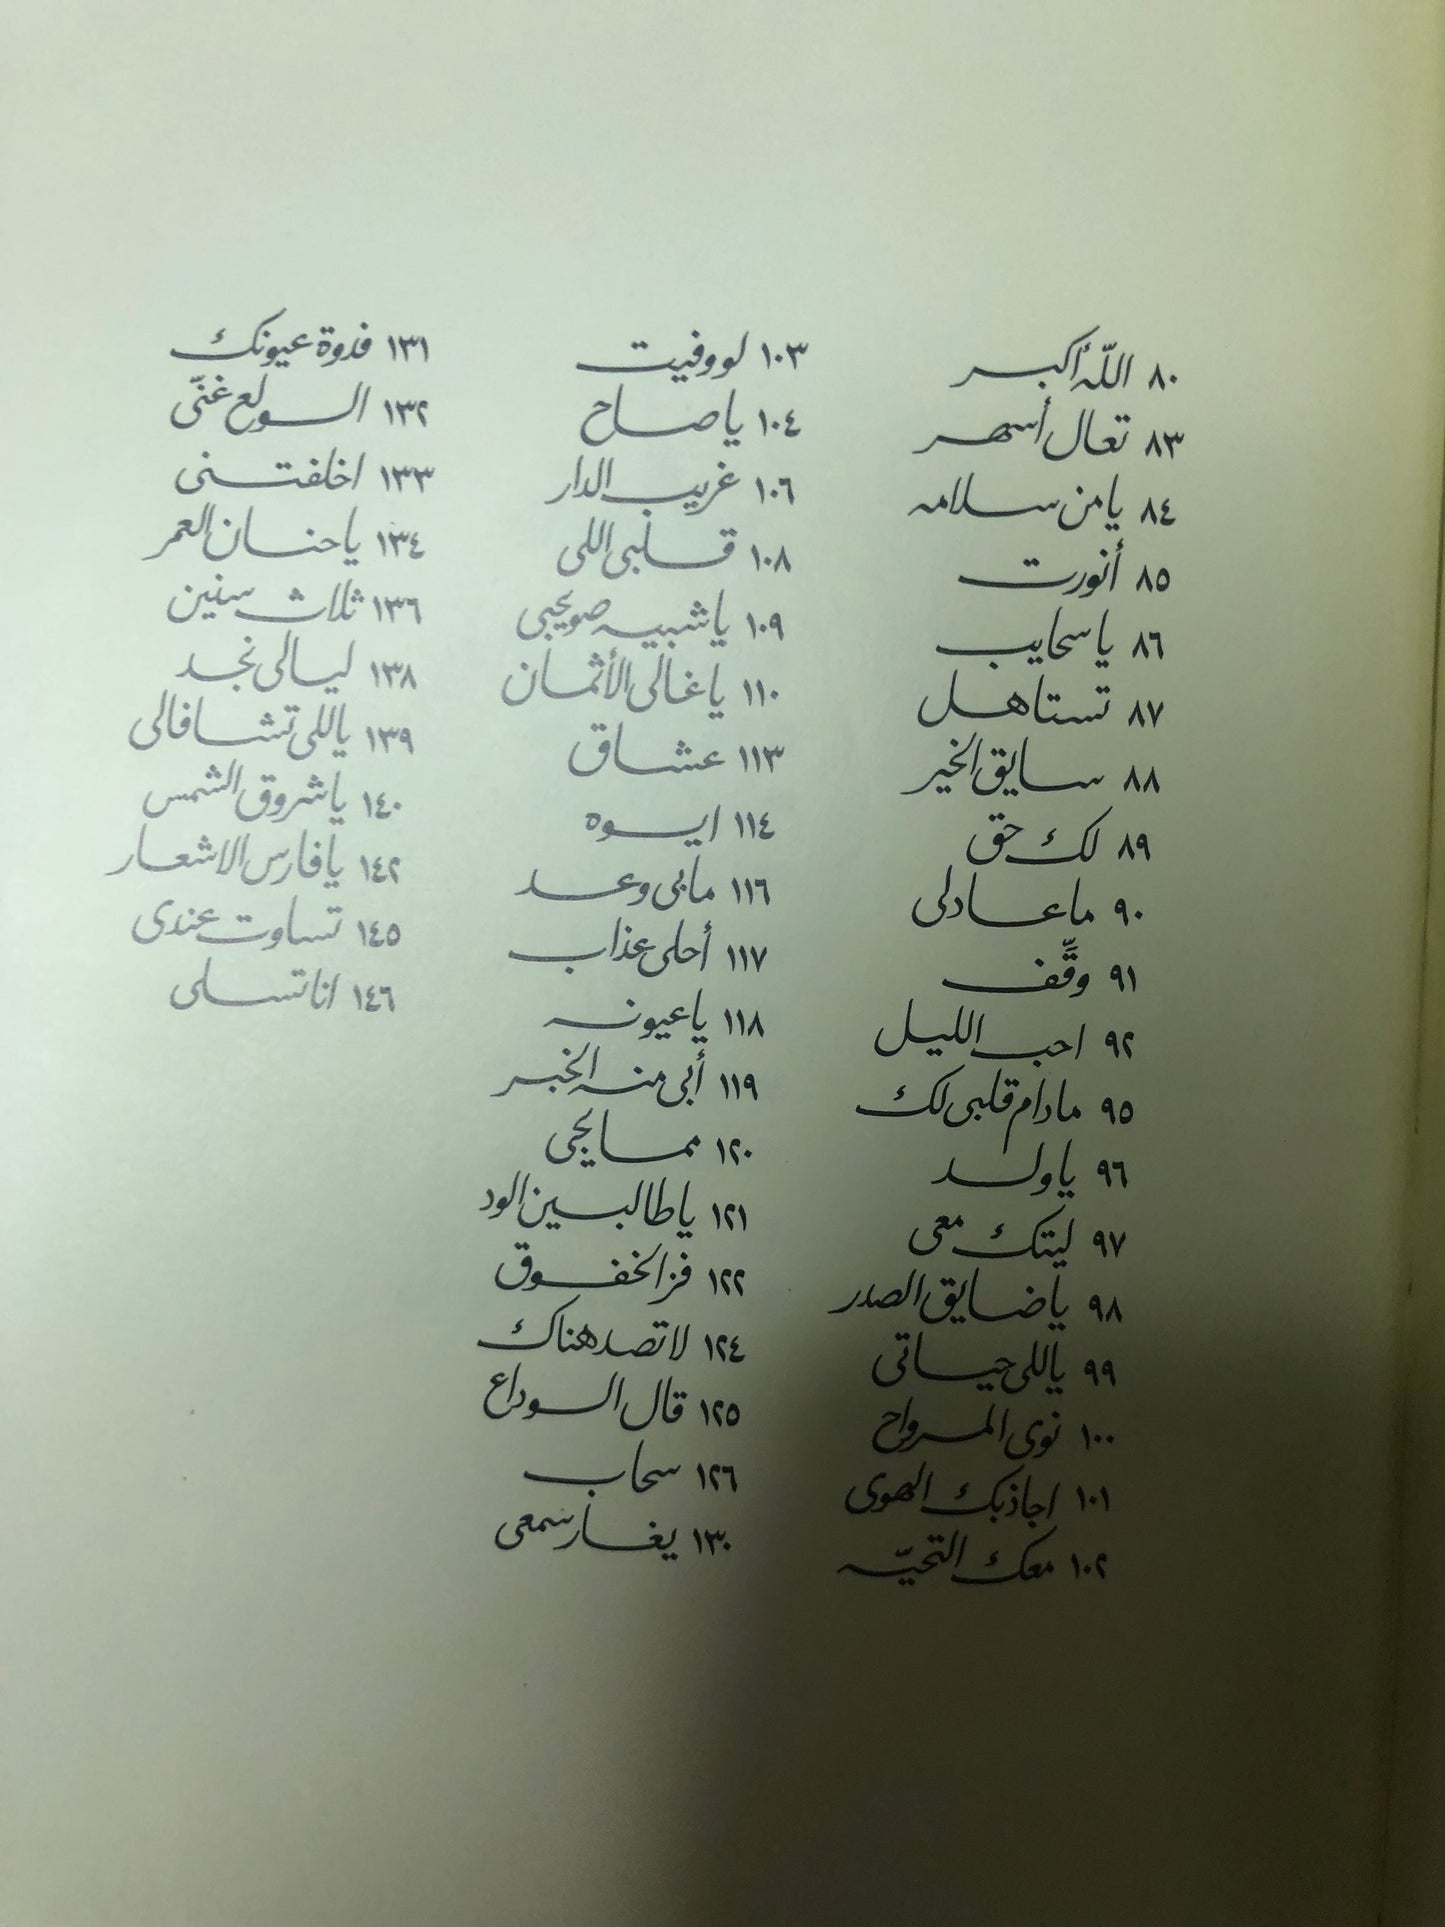 ٨٠ اللّه أكبر
٨٣ تعال أسهر
٨٤ يا من سلامه
٨٥ أنورت
٨٦ يا سحايب
٨٧ تستاهل
٨٨ سايق الخير
٨٩ لك حق
٩٠ ما عاد لى
٩١ وقِّف
٩٢ احب الليل
٩٥ ما دام قلبى لك
٩٦ يا ولد
٩٧ ليتك معى
٩٨ يا ضايق الصدر
٩٩ ياللى حياتى
١٠٠ نوى المرواح
١٠١ اجاذبك الهوى
١٠٢ معك التحيّه
١٠٣ لو وفيت
١٠٤ يا صاح
١٠٦ غريب الدار
١٠٨ قلبى اللى
١٠٩ يا شبيه صويحبى
١١٠ يا غالى الأثمان
١١٣ عشاق
١١٤ ايوه
١١٦ مابى وعد
١١٧ أحلى عذاب
١١٨ يا عيونه
١١٩ أبى منه الخبر
١٢٠ مما يحى
١٢١ يا طالبين الود
١٢٢ فز الخفوق
١٢٤ لا تصد هناك
١٢٥ قال الوداع
١٢٦ سحاب
١٣٠ يغار سمعى
١٣١ فدوة عيونك
١٣٢ الولع غنّى
١٣٣ اخلفتنى
١٣٤ يا حنان العمر
١٣٦ ثلاث سنين
١٣٨ ليالى نجد
١٣٩ ياللى تشافالى
١٤٠ يا شروق الشمس
١٤٢ يا فارس الاشعار
١٤٥ تساوت عندى
١٤٦ انا تسلى